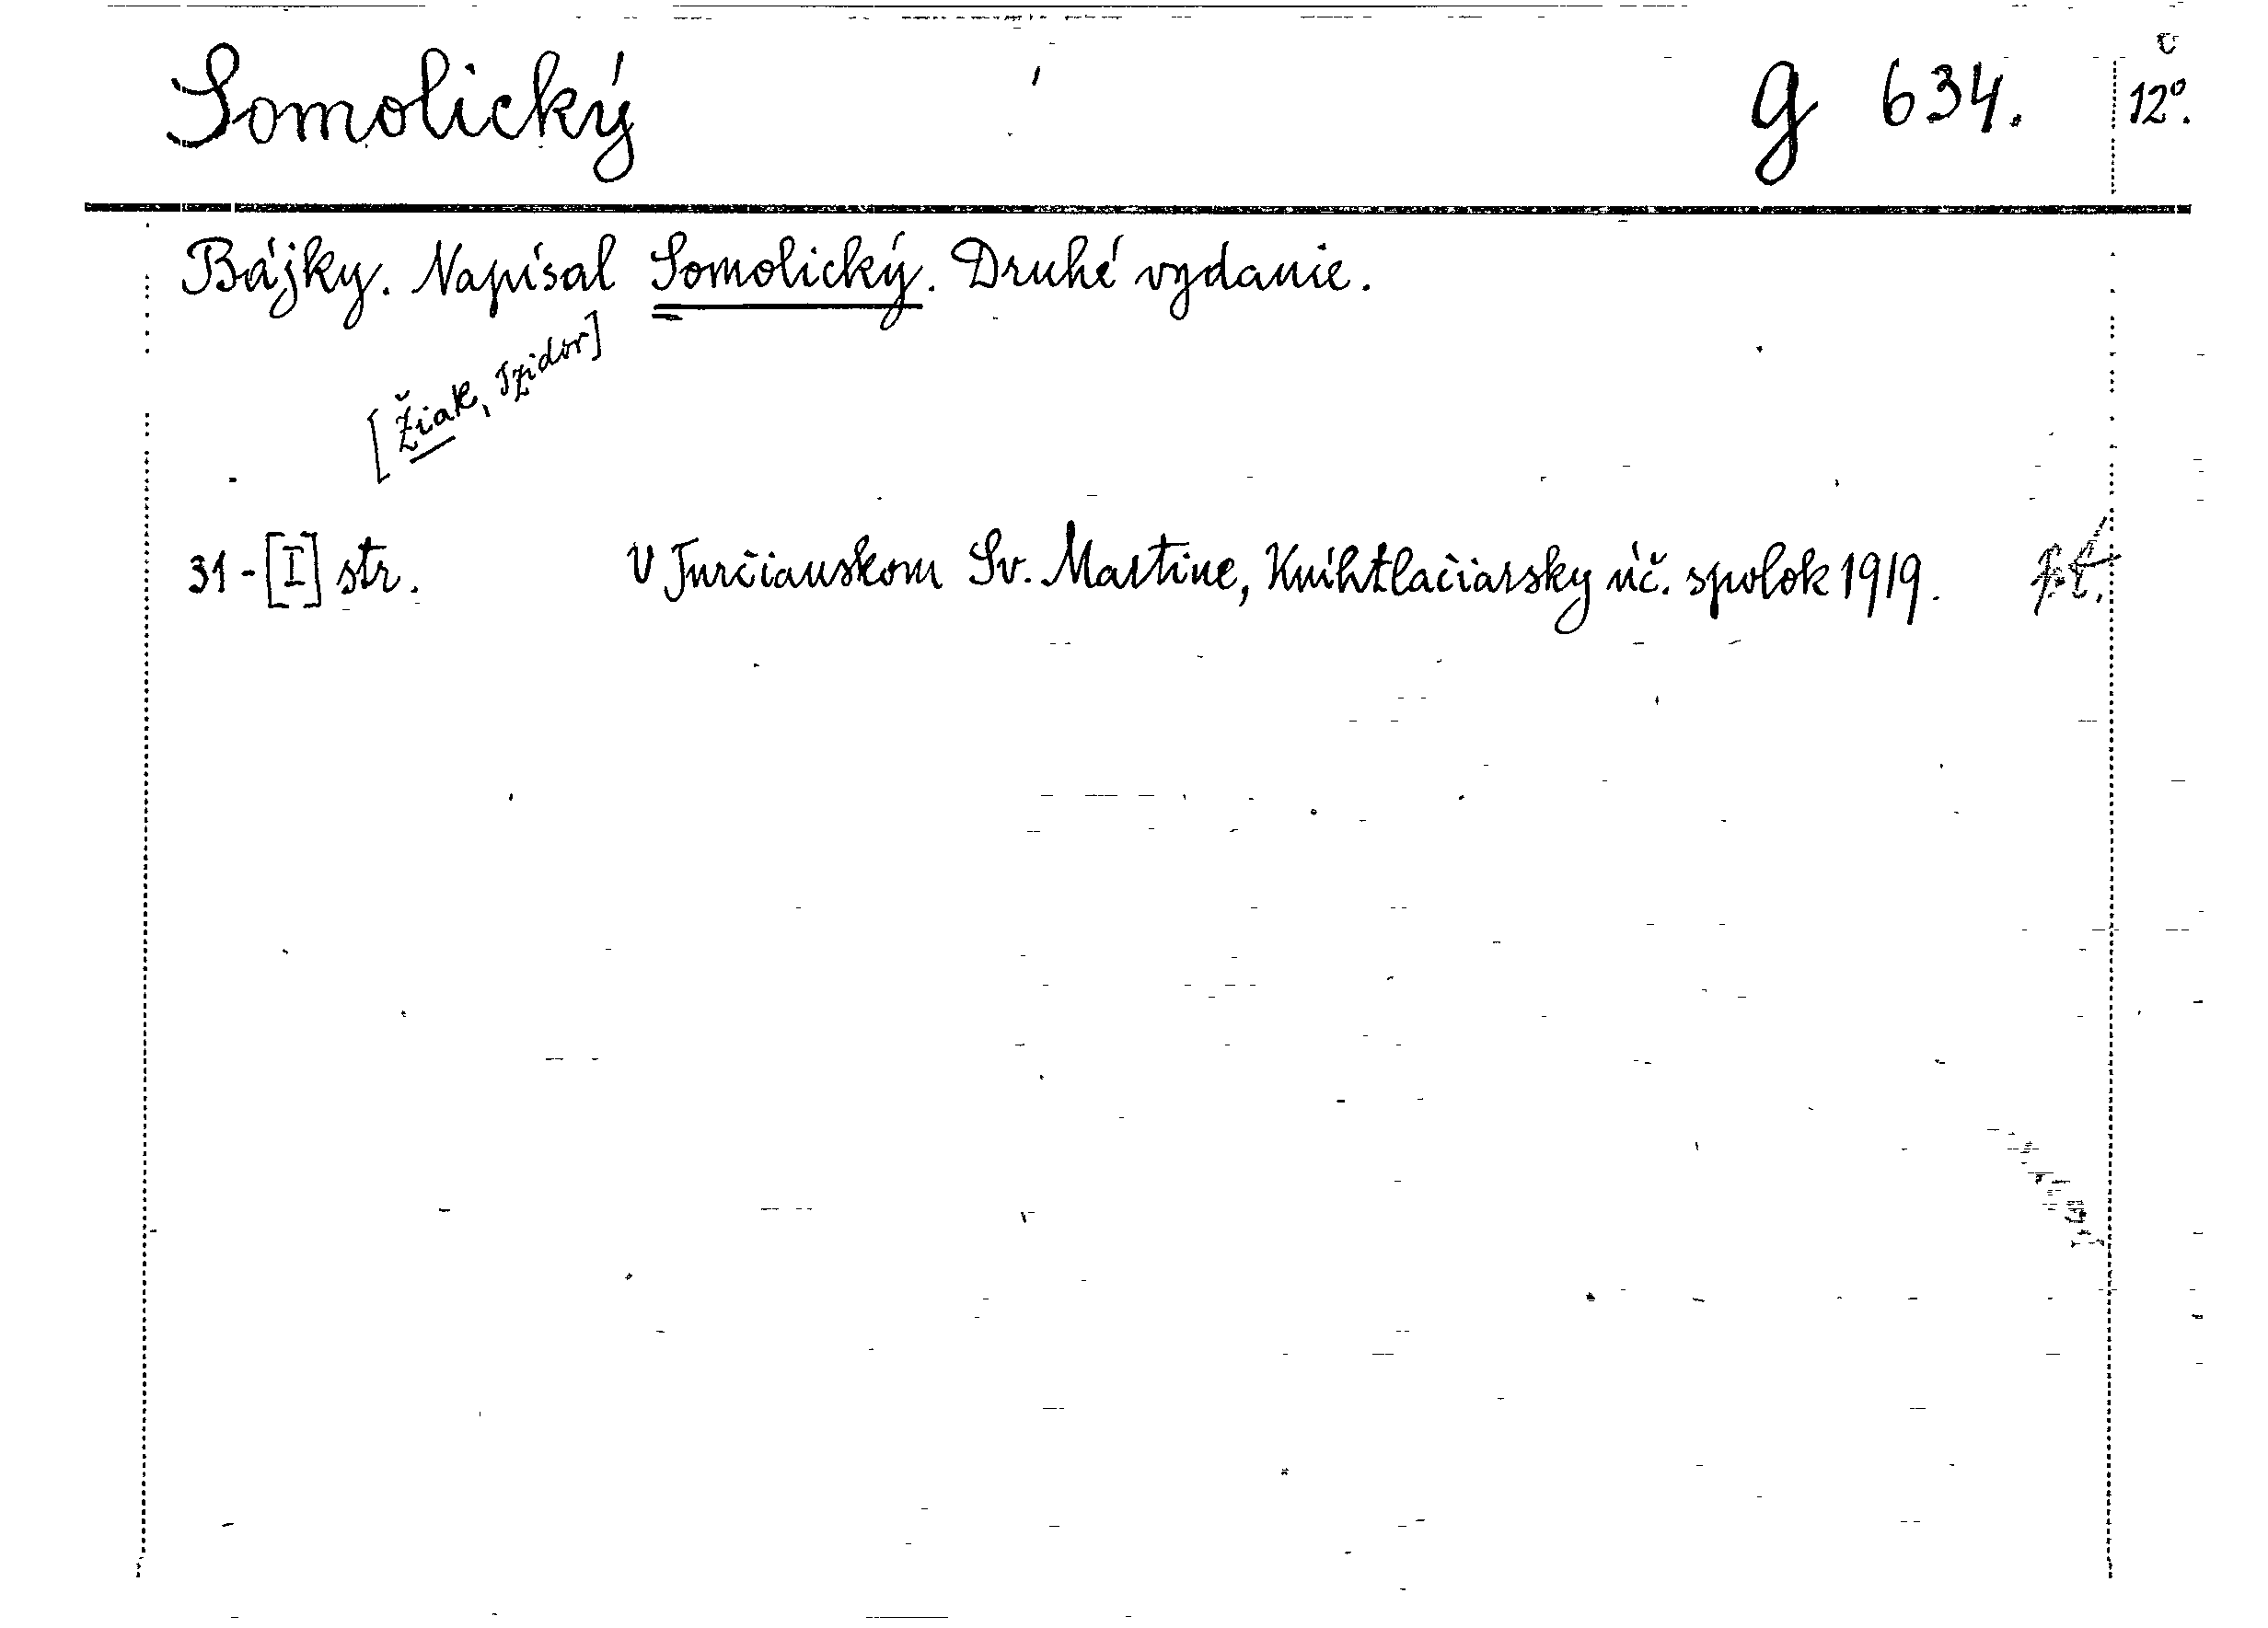 Somolický g 634. 12º.
Bájky. Napísal Somolický. Druhé vydanie.
[Žiak, Izidor]
31-[I] str. V Turčianskom Sv. Martine, Kníhtlačiarsky úč. spolok 1919.